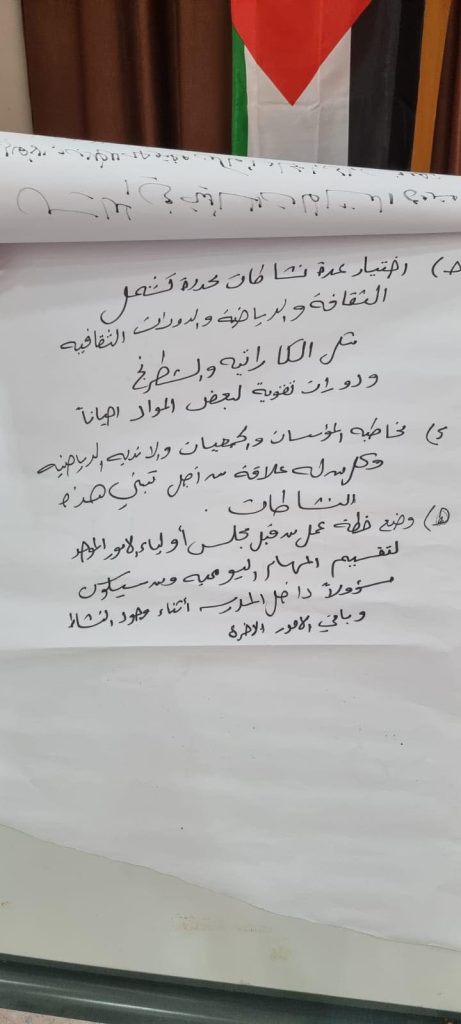 ج) اختيار عدة نشاطات محددة تشمل
الثقافة والرياضية والدورات الثقافية
مثل الكاراتيه والشطرنج
ودورات تقوية لبعض المواد احياناً
د) مخاطبة المؤسسات والجمعيات والانديه الرياضيه
وكل من له علاقة من أجل تبني هذه
النشاطات .
ه) وضع خطة عمل من قبل مجلس أولياء الامور الموحد
لتقسيم المهام اليوميه ومن سيكون
مسؤولاً داخل المدرسه أثناء وجود النشاط
وباقي الامور الاخرة